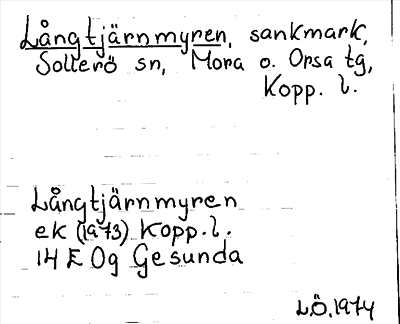 Långtjärnmyren, sankmark,
Sollerö sn, Mora o. Orsa tg,
Kopp. l.
Långtjärnmyren
ek (1973) Kopp. l.
14 E 0g Gesunda
LÖ, 1974